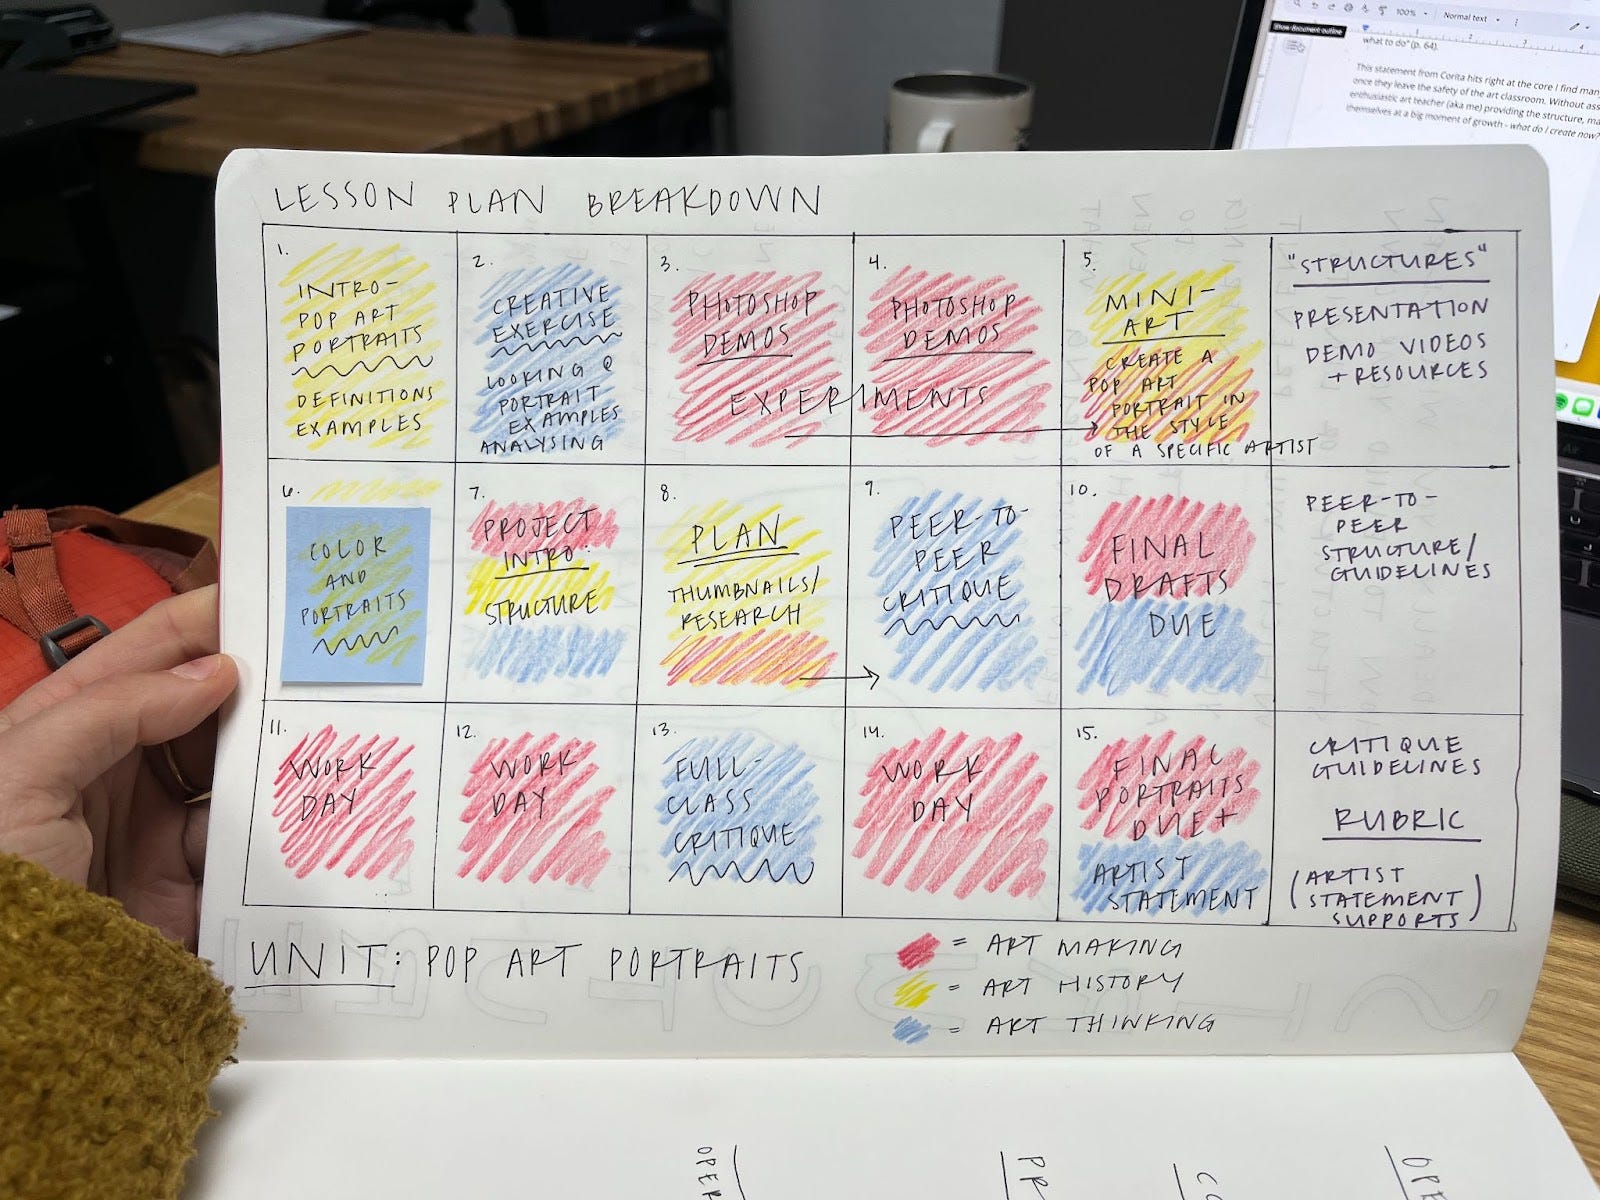 100%
Normal text
Show document outline
what to do" (p. 64).
This statement from Corita hits right at the core I find many
once they leave the safety of the art classroom. Without
enthusiastic art teacher (aka me) providing the structure,
themselves at a big moment of growth - what do I create now?
LESSON PLAN BREAKDOWN
1.
INTRO-
POP ART
PORTRAITS
DEFINITIONS
EXAMPLES
2.
CREATIVE
EXERCISE
LOOKING @
PORTRAIT
EXAMPLES
ANALYSING
3.
PHOTOSHOP
DEMOS
4.
PHOTOSHOP
DEMOS
EXPERIMENTS
5.
MINI-
ART
CREATE A
POP ART
PORTRAIT IN
THE STYLE
OF A SPECIFIC ARTIST
"STRUCTURES"
PRESENTATION
DEMO VIDEOS
+ RESOURCES
6.
COLOR
AND
PORTRAITS
7.
PROJECT
INTRO:
STRUCTURE
8.
PLAN
THUMBNAILS/
RESEARCH
9.
PEER-TO-
PEER
CRITIQUE
10.
FINAL
DRAFTS
DUE
PEER-TO-
PEER
STRUCTURE/
GUIDELINES
11.
WORK
DAY
12.
WORK
DAY
13.
FULL-
CLASS
CRITIQUE
14.
WORK
DAY
15.
FINAL
PORTRAITS
DUE +
ARTIST
STATEMENT
CRITIQUE
GUIDELINES
RUBRIC
(ARTIST
STATEMENT
SUPPORTS)
UNIT: POP ART PORTRAITS
= ART MAKING
= ART HISTORY
= ART THINKING
Air